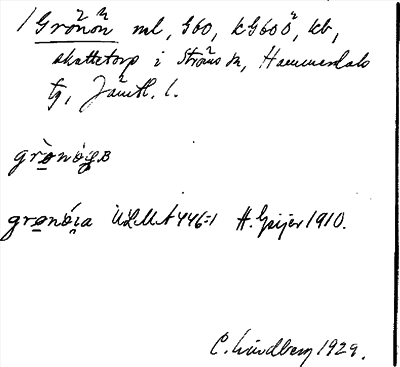 /Grönön ml, G60, kG60ö, kb,
skattetorp i Ströms sn, Hammerdals
tg, Jämtl. l.
grònög.B
gronóia ULMA 446:1 H. Geijer 1910.
C. Lindberg 1929.